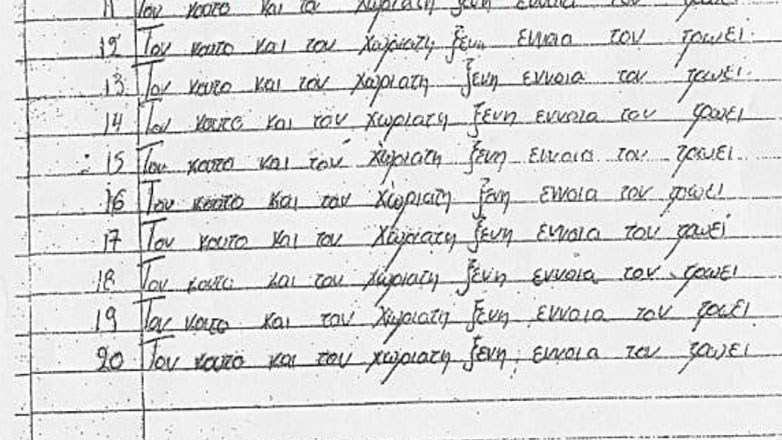 11 Τον κουτο και τον χωριατη ξενη εννοια τον τρωει
12 Τον κουτο και τον χωριατη ξενη εννοια τον τρωει
13 Τον κουτο και τον χωριατη ξενη εννοια τον τρωει
14 Τον κουτο και τον χωριατη ξενη εννοια τον τρωει
15 Τον κουτο και τον χωριατη ξενη εννοια τον τρωει
16 Τον κουτο και τον χωριατη ξενη εννοια τον τρωει
17 Τον κουτο και τον χωριατη ξενη εννοια τον τρωει
18 Τον κουτο και τον χωριατη ξενη εννοια τον τρωει
19 Τον κουτο και τον χωριατη ξενη εννοια τον τρωει
20 Τον κουτο και τον χωριατη ξενη εννοια τον τρωει